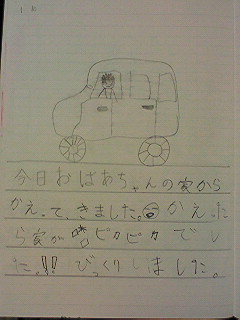 今日おばあちゃんの家から
かえって、きました。かえった
ら家がピカピカでし
た。!! びっくりしました。